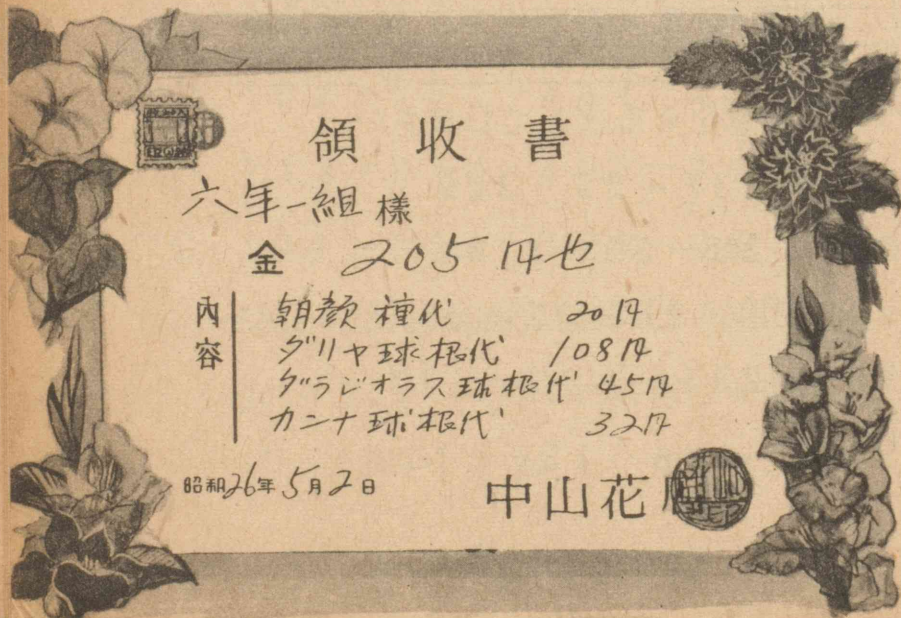 領収書
六年一組様
金 205円也
内容
朝顔種代 20円
ダリヤ球根代 108円
グラジオラス球根代 45円
カンナ球根代 32円
昭和26年5月2日
中山花